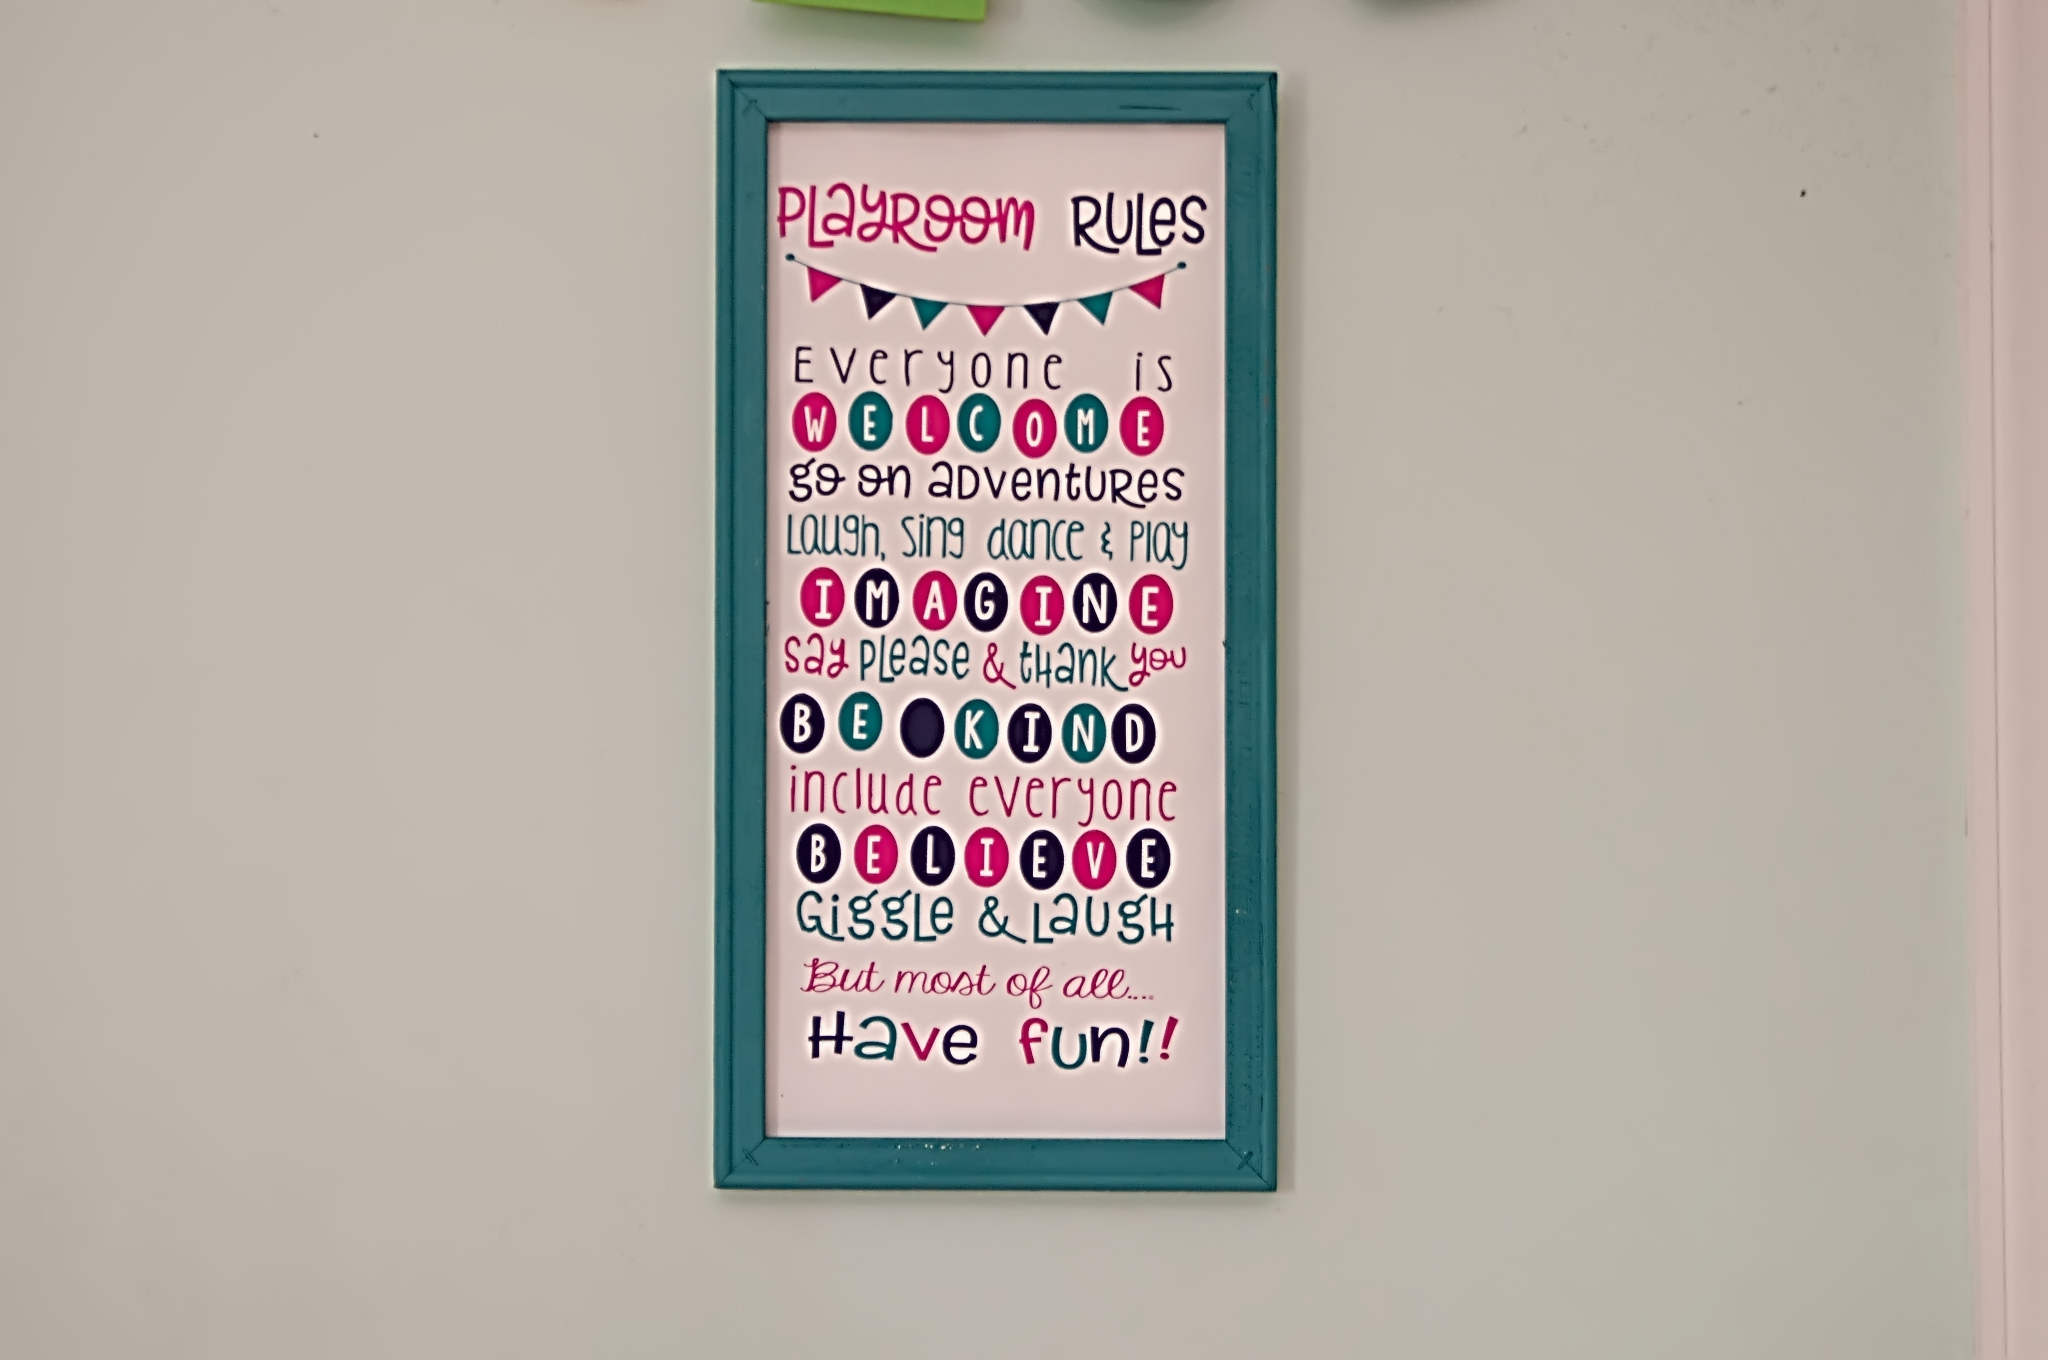 PLAYROOM RULES
Everyone is
WELCOME
go on adventures
Laugh, sing dance & play
IMAGINE
say please & thank you
BE KIND
include everyone
BELIEVE
Giggle & Laugh
But most of all....
Have fun!!